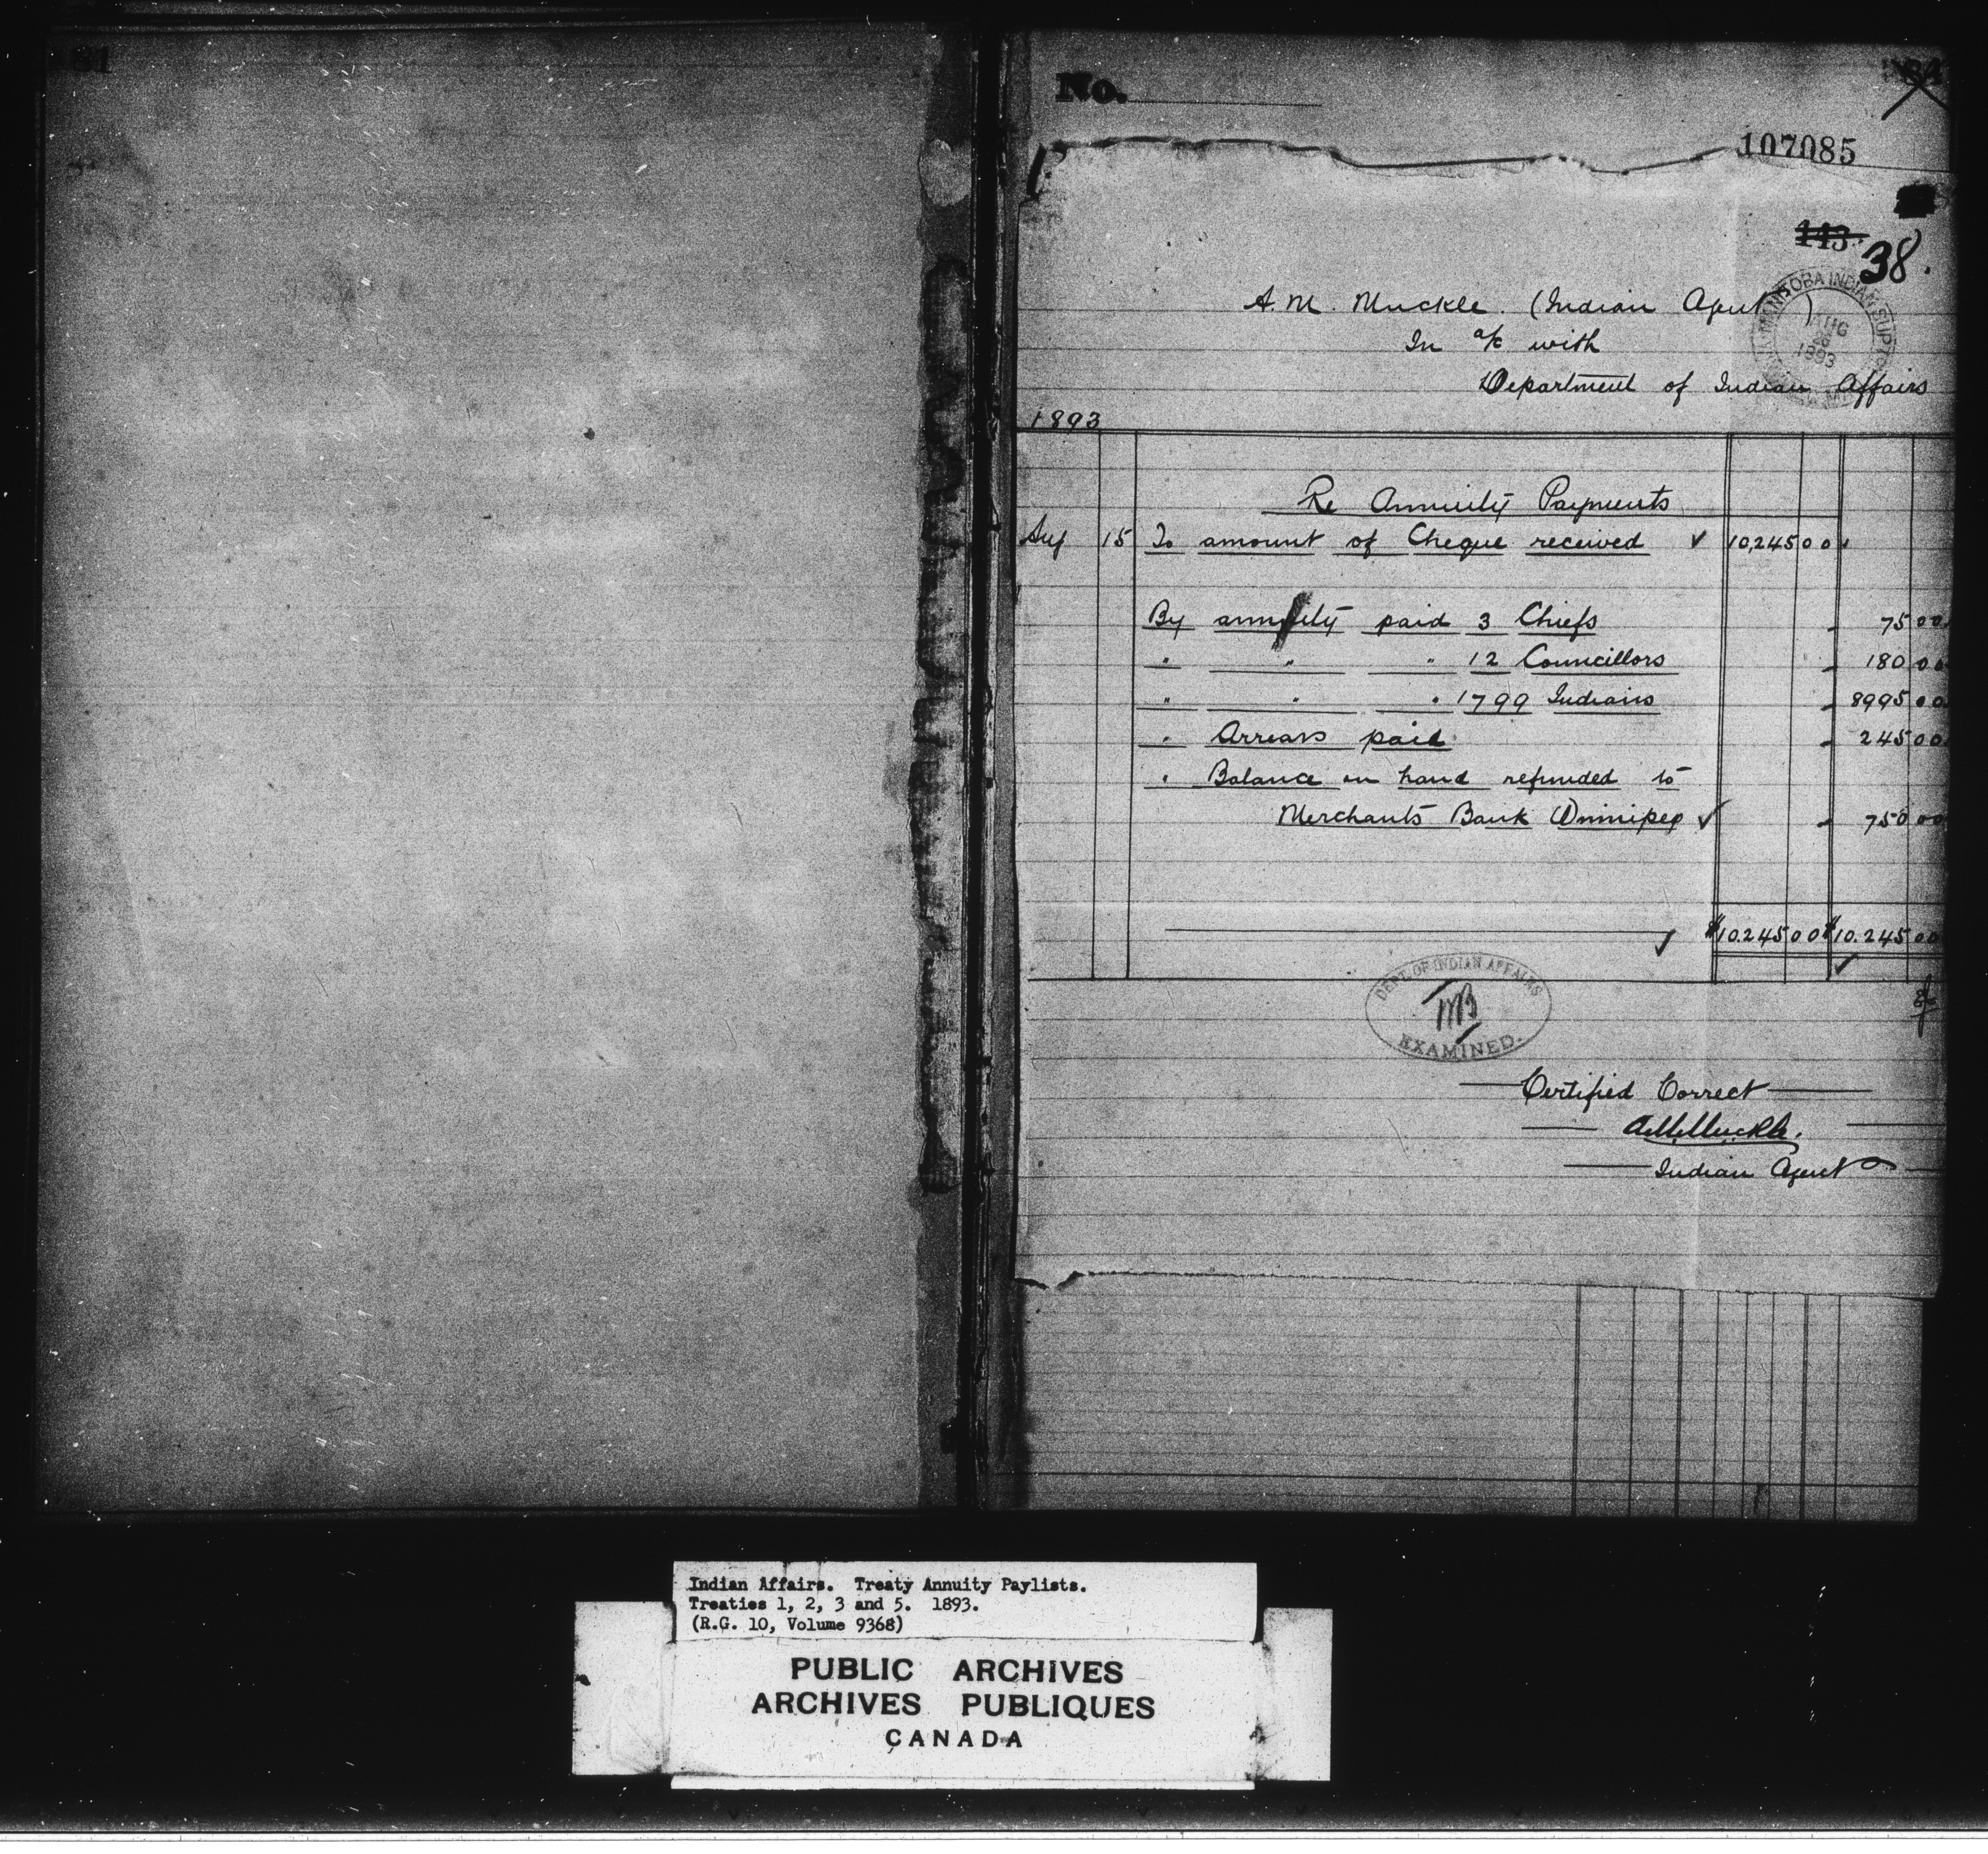 81
No.
84
107085
143
38.
A. M. Muckle. (Indian Agent)
In a/c with
Department of Indian Affairs
MANITOBA INDIAN SUPTCY
AUG
1893
1893
Re Annuity Payments
Aug 15 To amount of Cheque received ✓ 10,245 00
By annuity paid 3 Chiefs 75 00
" " " 12 Councillors 180 00
" " " 1799 Indians 8995 00
" Arrears paid 245 00
" Balance on hand refunded to
Merchants Bank Winnipeg ✓ 750 00
✓ $10.245 00 $10.245 00
✓
DEPT. OF INDIAN AFFAIRS
EXAMINED.
Certified Correct
A.M. Muckle.
Indian Agent
Indian Affairs. Treaty Annuity Paylists.
Treaties 1, 2, 3 and 5. 1893.
(R.G. 10, Volume 9368)
PUBLIC ARCHIVES
ARCHIVES PUBLIQUES
CANADA